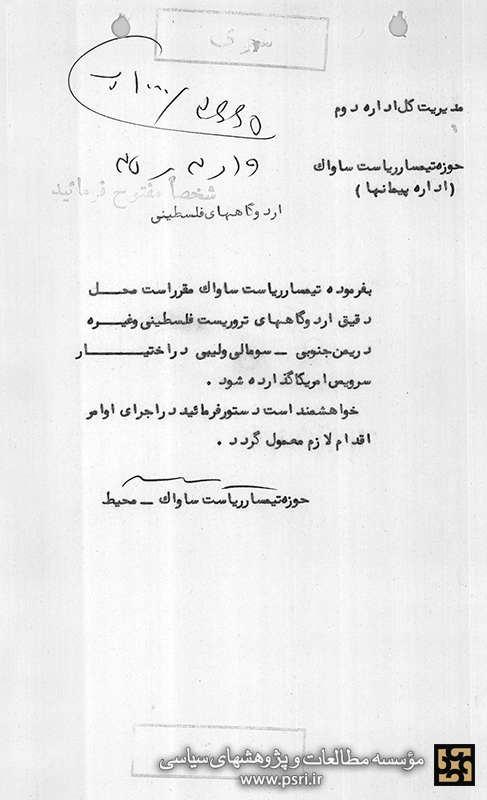 سری
مدیریت کل اداره دوم
حوزه تیمسار ریاست ساواک
(اداره پیمانها)
شخصاً مفتوح فرمائید
اردوگاههای فلسطینی
بفرموده تیمسار ریاست ساواک مقرر است محل
دقیق اردوگاههای تروریست فلسطینی وغیره
دریمن جنوبی - سومالی ولیبی در اختیار
سرویس امریکا گذارده شود .
خواهشمند است دستور فرمائید در اجرای اوامر
اقدام لازم معمول گردد .
حوزه تیمسار ریاست ساواک - محیط
مؤسسه مطالعات و پژوهشهای سیاسی
www.psri.ir